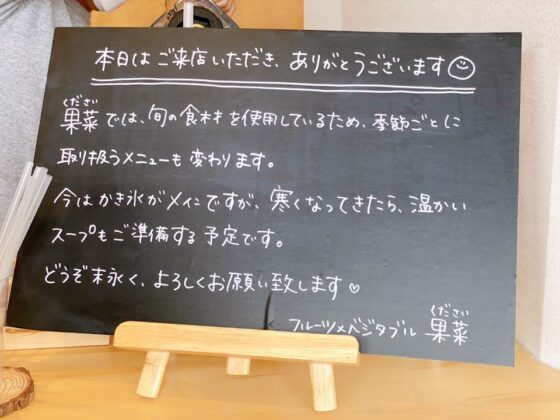 本日は ご来店いただき、ありがとうございます☺
ください
果菜では、旬の食材を使用しているため、季節ごとに
取り扱うメニューも変わります。
今は かき氷がメインですが、寒くなってきたら、温かい
スープもご準備する予定です。
どうぞ末永く、よろしくお願い致します♡
ください
フルーツ×ベジタブル 果菜